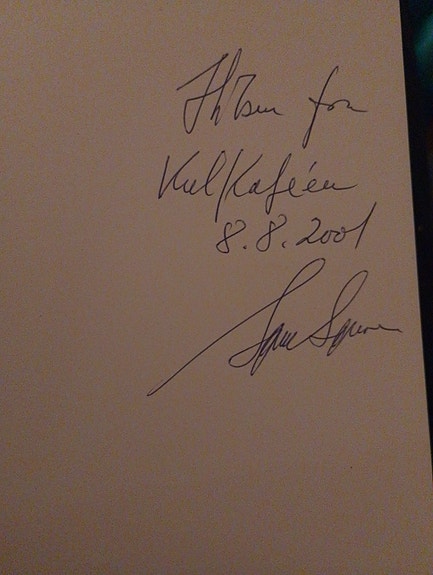 Hilsen fra
Kul/Kaféen
8.8.2001